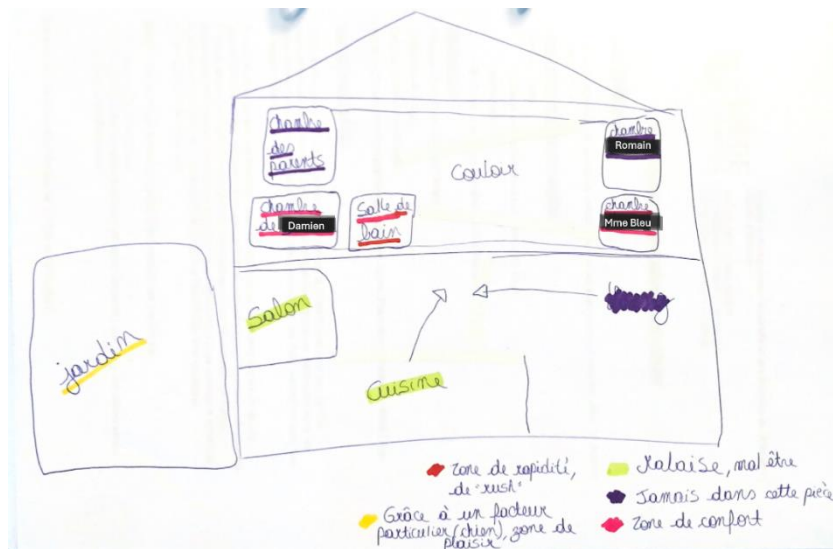 chambre
des
parents
couloir
chambre
Romain
chambre
de Damien
Salle de
bain
chambre
Mme Bleu
Salon
jardin
cuisine
Zone de rapidité,
de "rush"
Grâce à un facteur
particulier (chien), zone de
plaisir
Malaise, mal être
Jamais dans cette pièce
Zone de confort